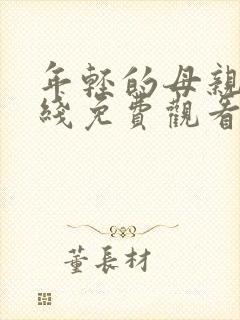 年輕的母親
綫免費觀看
董長材